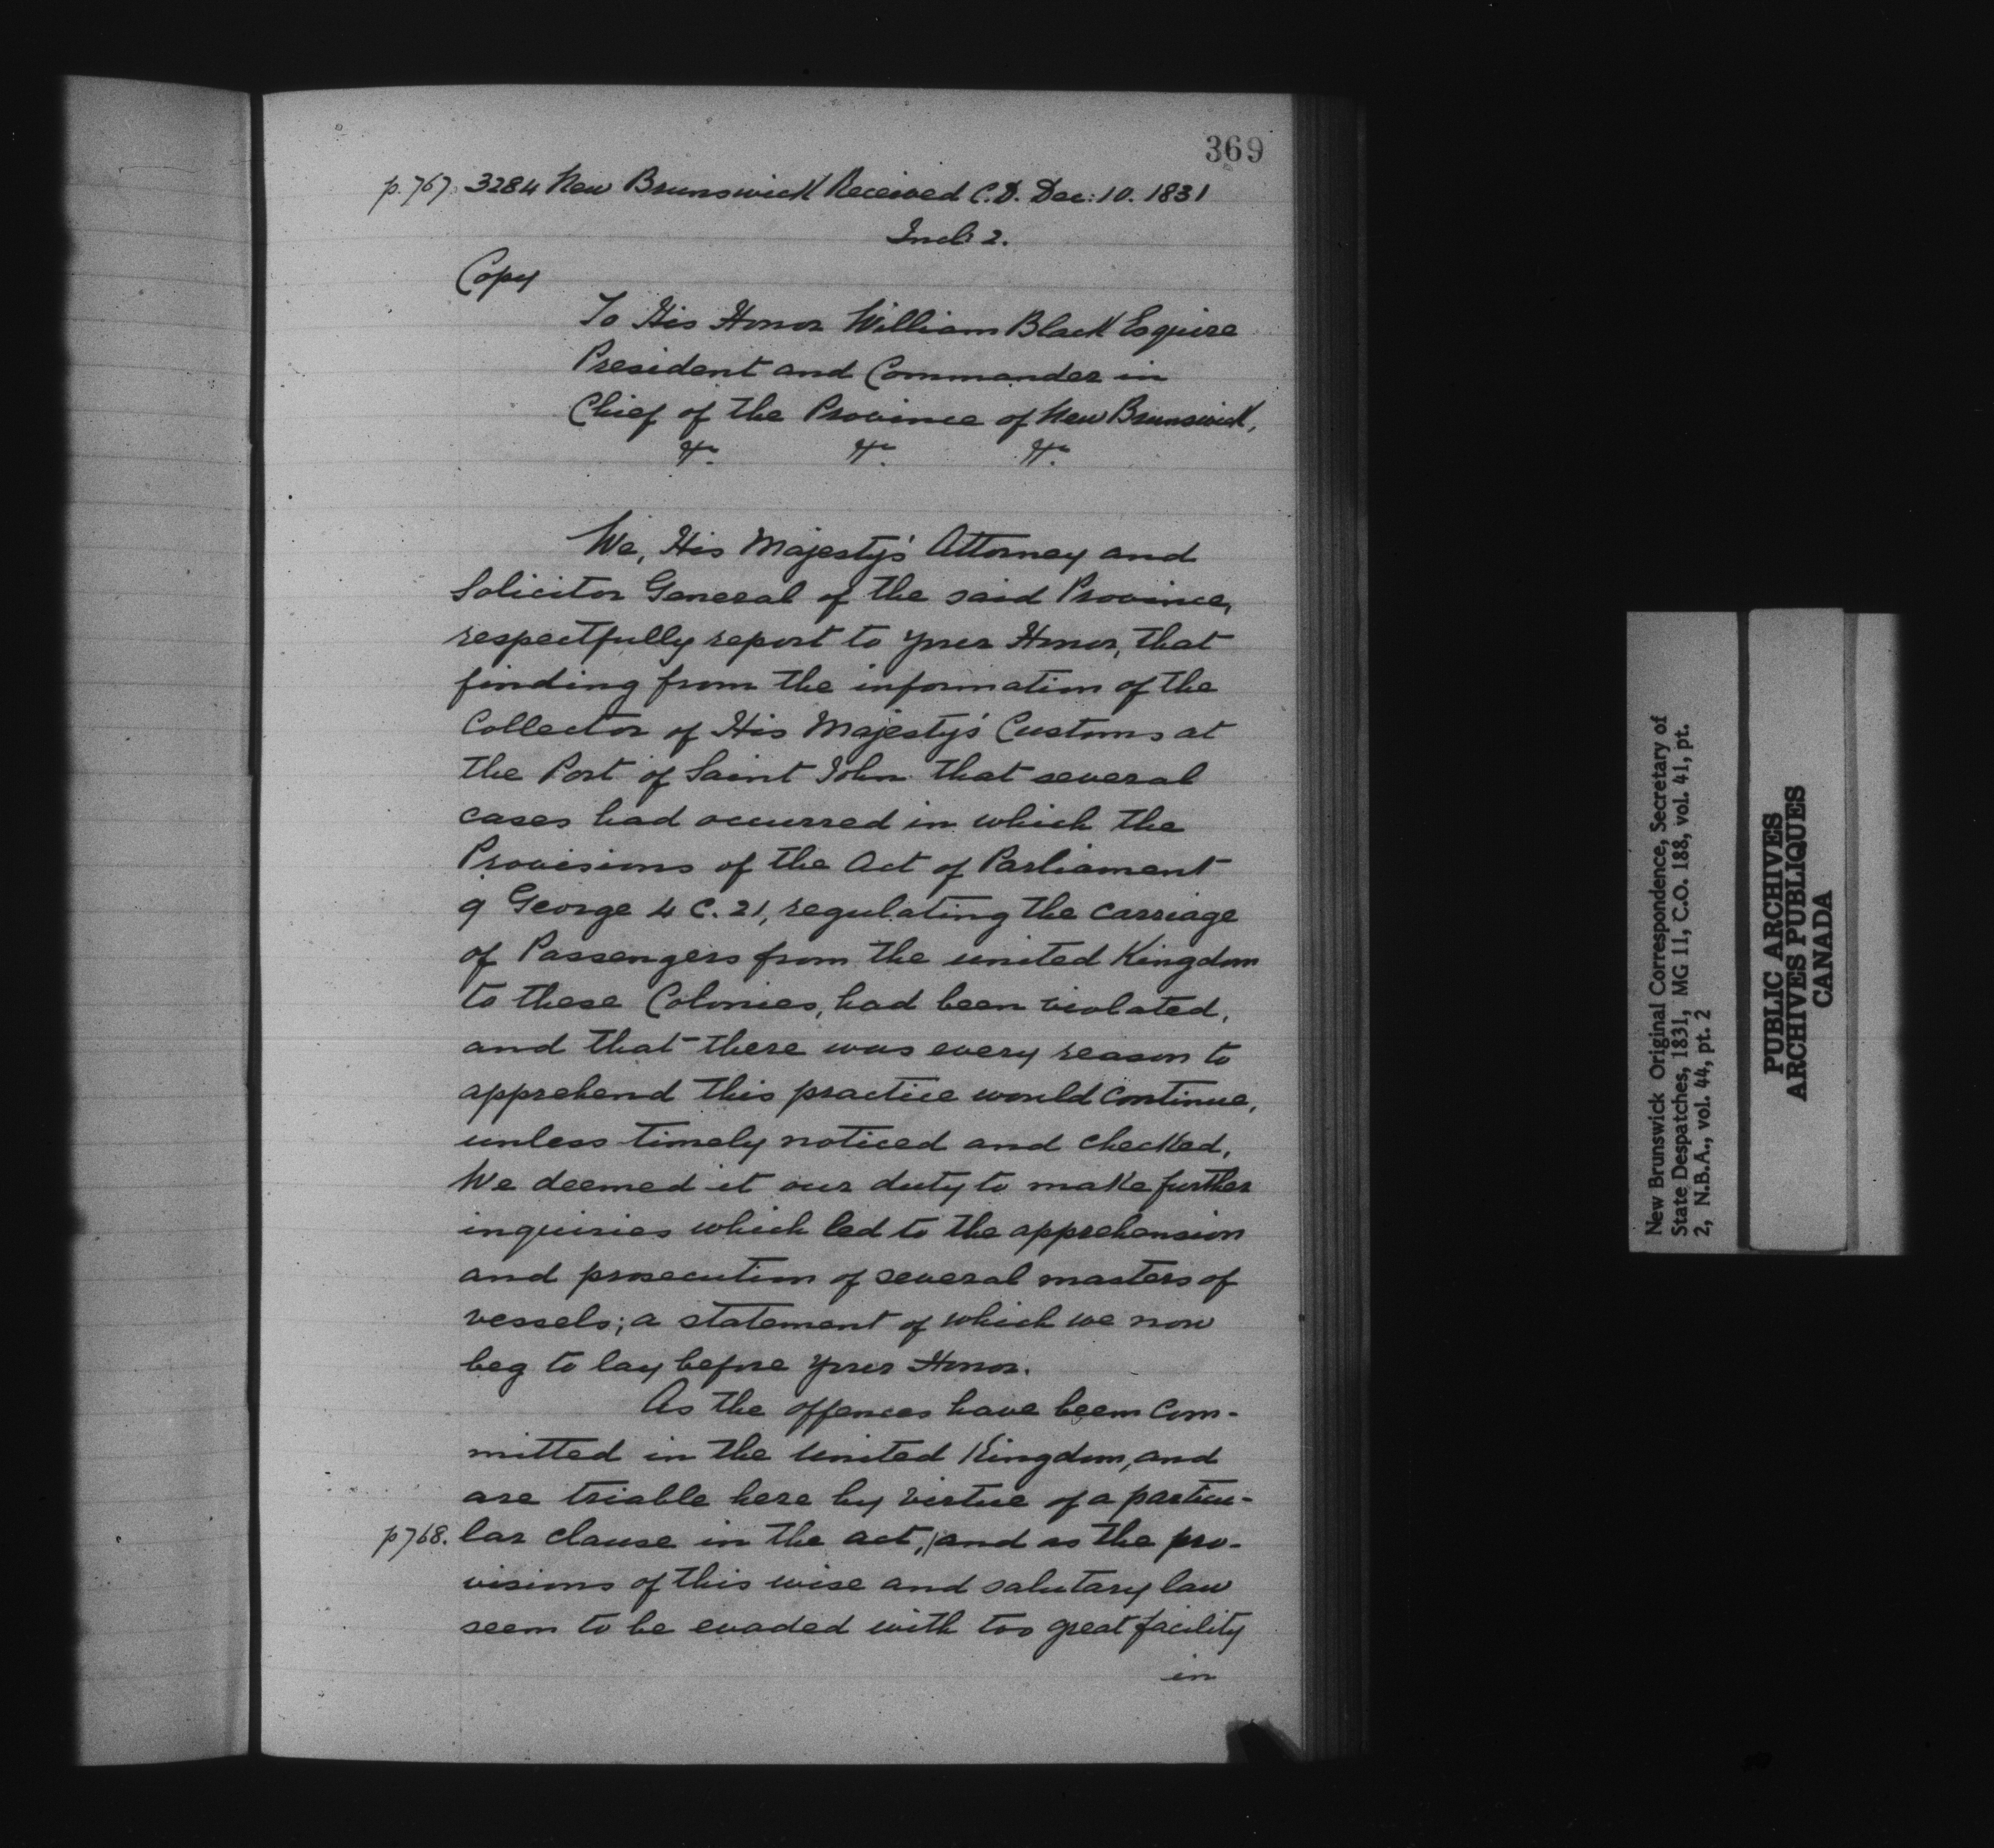 369
p.767. 3284 New Brunswick Received C.D. Dec: 10. 1831
Incl: 2.
Copy
To His Honor William Black Esquire
President and Commander in
Chief of the Province of New Brunswick,
&c. &c. &c.
We, His Majesty's Attorney and
Solicitor General of the said Province,
respectfully report to your Honor, that
finding from the information of the
Collector of His Majesty's Customs at
the Port of Saint John that several
cases had occurred in which the
Provisions of the Act of Parliament
9 George 4 C. 21, regulating the carriage
of Passengers from the United Kingdom
to these Colonies, had been violated,
and that there was every reason to
apprehend this practice would continue,
unless timely noticed and checked,
We deemed it our duty to make further
inquiries which led to the apprehension
and prosecution of several masters of
vessels; a statement of which we now
beg to lay before your Honor.
As the offences have been com-
mitted in the United Kingdom, and
are triable here by virtue of a particu-
p768. lar clause in the act, | and as the pro-
visions of this wise and salutary law
seem to be evaded with too great facility
in
New Brunswick Original Correspondence, Secretary of
State Despatches, 1831, MG 11, C.O. 188, vol. 41, pt.
2, N.B.A., vol. 44, pt. 2
PUBLIC ARCHIVES
ARCHIVES PUBLIQUES
CANADA